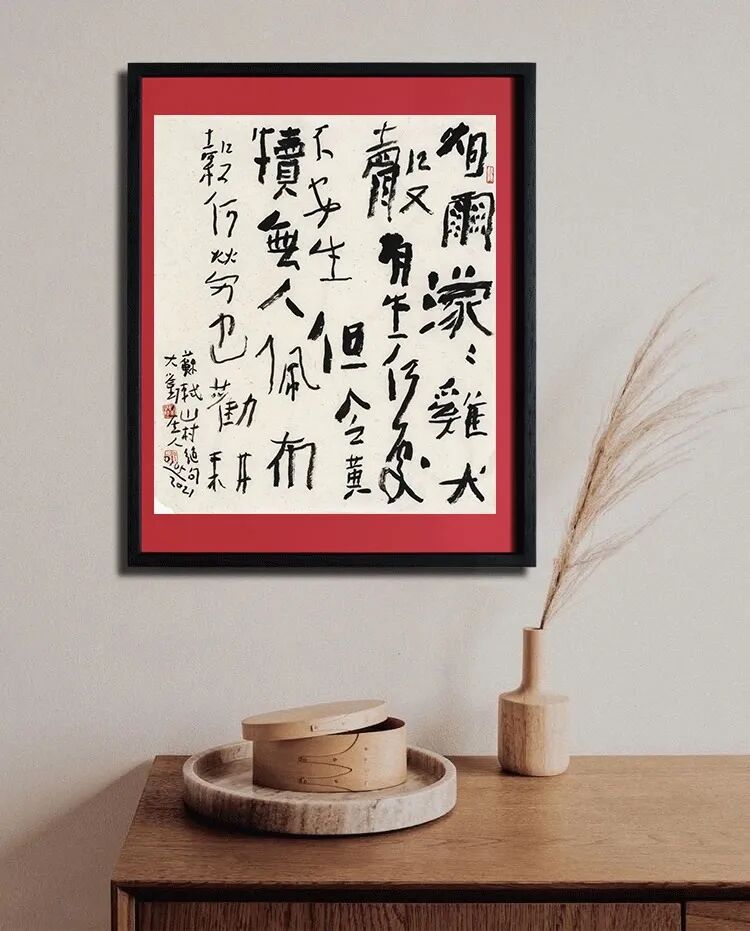 烟雨濛〻雞犬
聲有生何處
不安生但令黃
犢無人佩布
穀何勞也勸耕
蘇軾山村絕句
2021